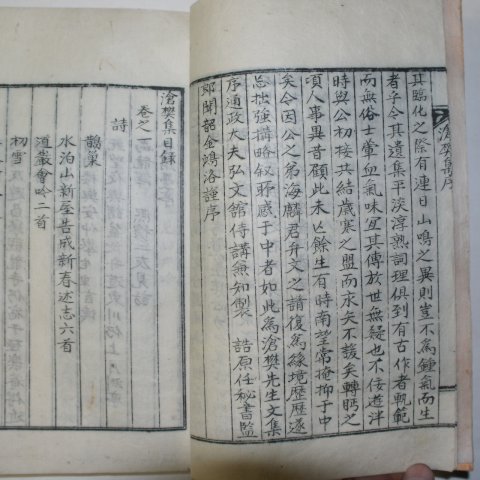 滄樊集序
其臨化之際有連日山鳴之異則豈不為鍾氣而生
者乎今其遺集平淡淳熟詞理俱到有古作者軌範
而無俗士葷血氣味宜其傳於世無疑也不佞遊泮
時與公初接共結歲寒之盟而永矢不諼矣轉眄之
頃人事異昔顧此未亾餘生有時南望常掩抑于中
矣今因公之弟海麟君升文之請復為緣境歷歷遂
忘拙強搆略叙野感于中者如此為滄樊先生文集
序通政大夫弘文館侍講兼知製 誥原任秘書監
郎聞韶金鴻洛謹序
滄樊集目錄
卷之一
詩
鵲巢
水泊山新屋告成新春述志六首
道巖會吟二首
初雪